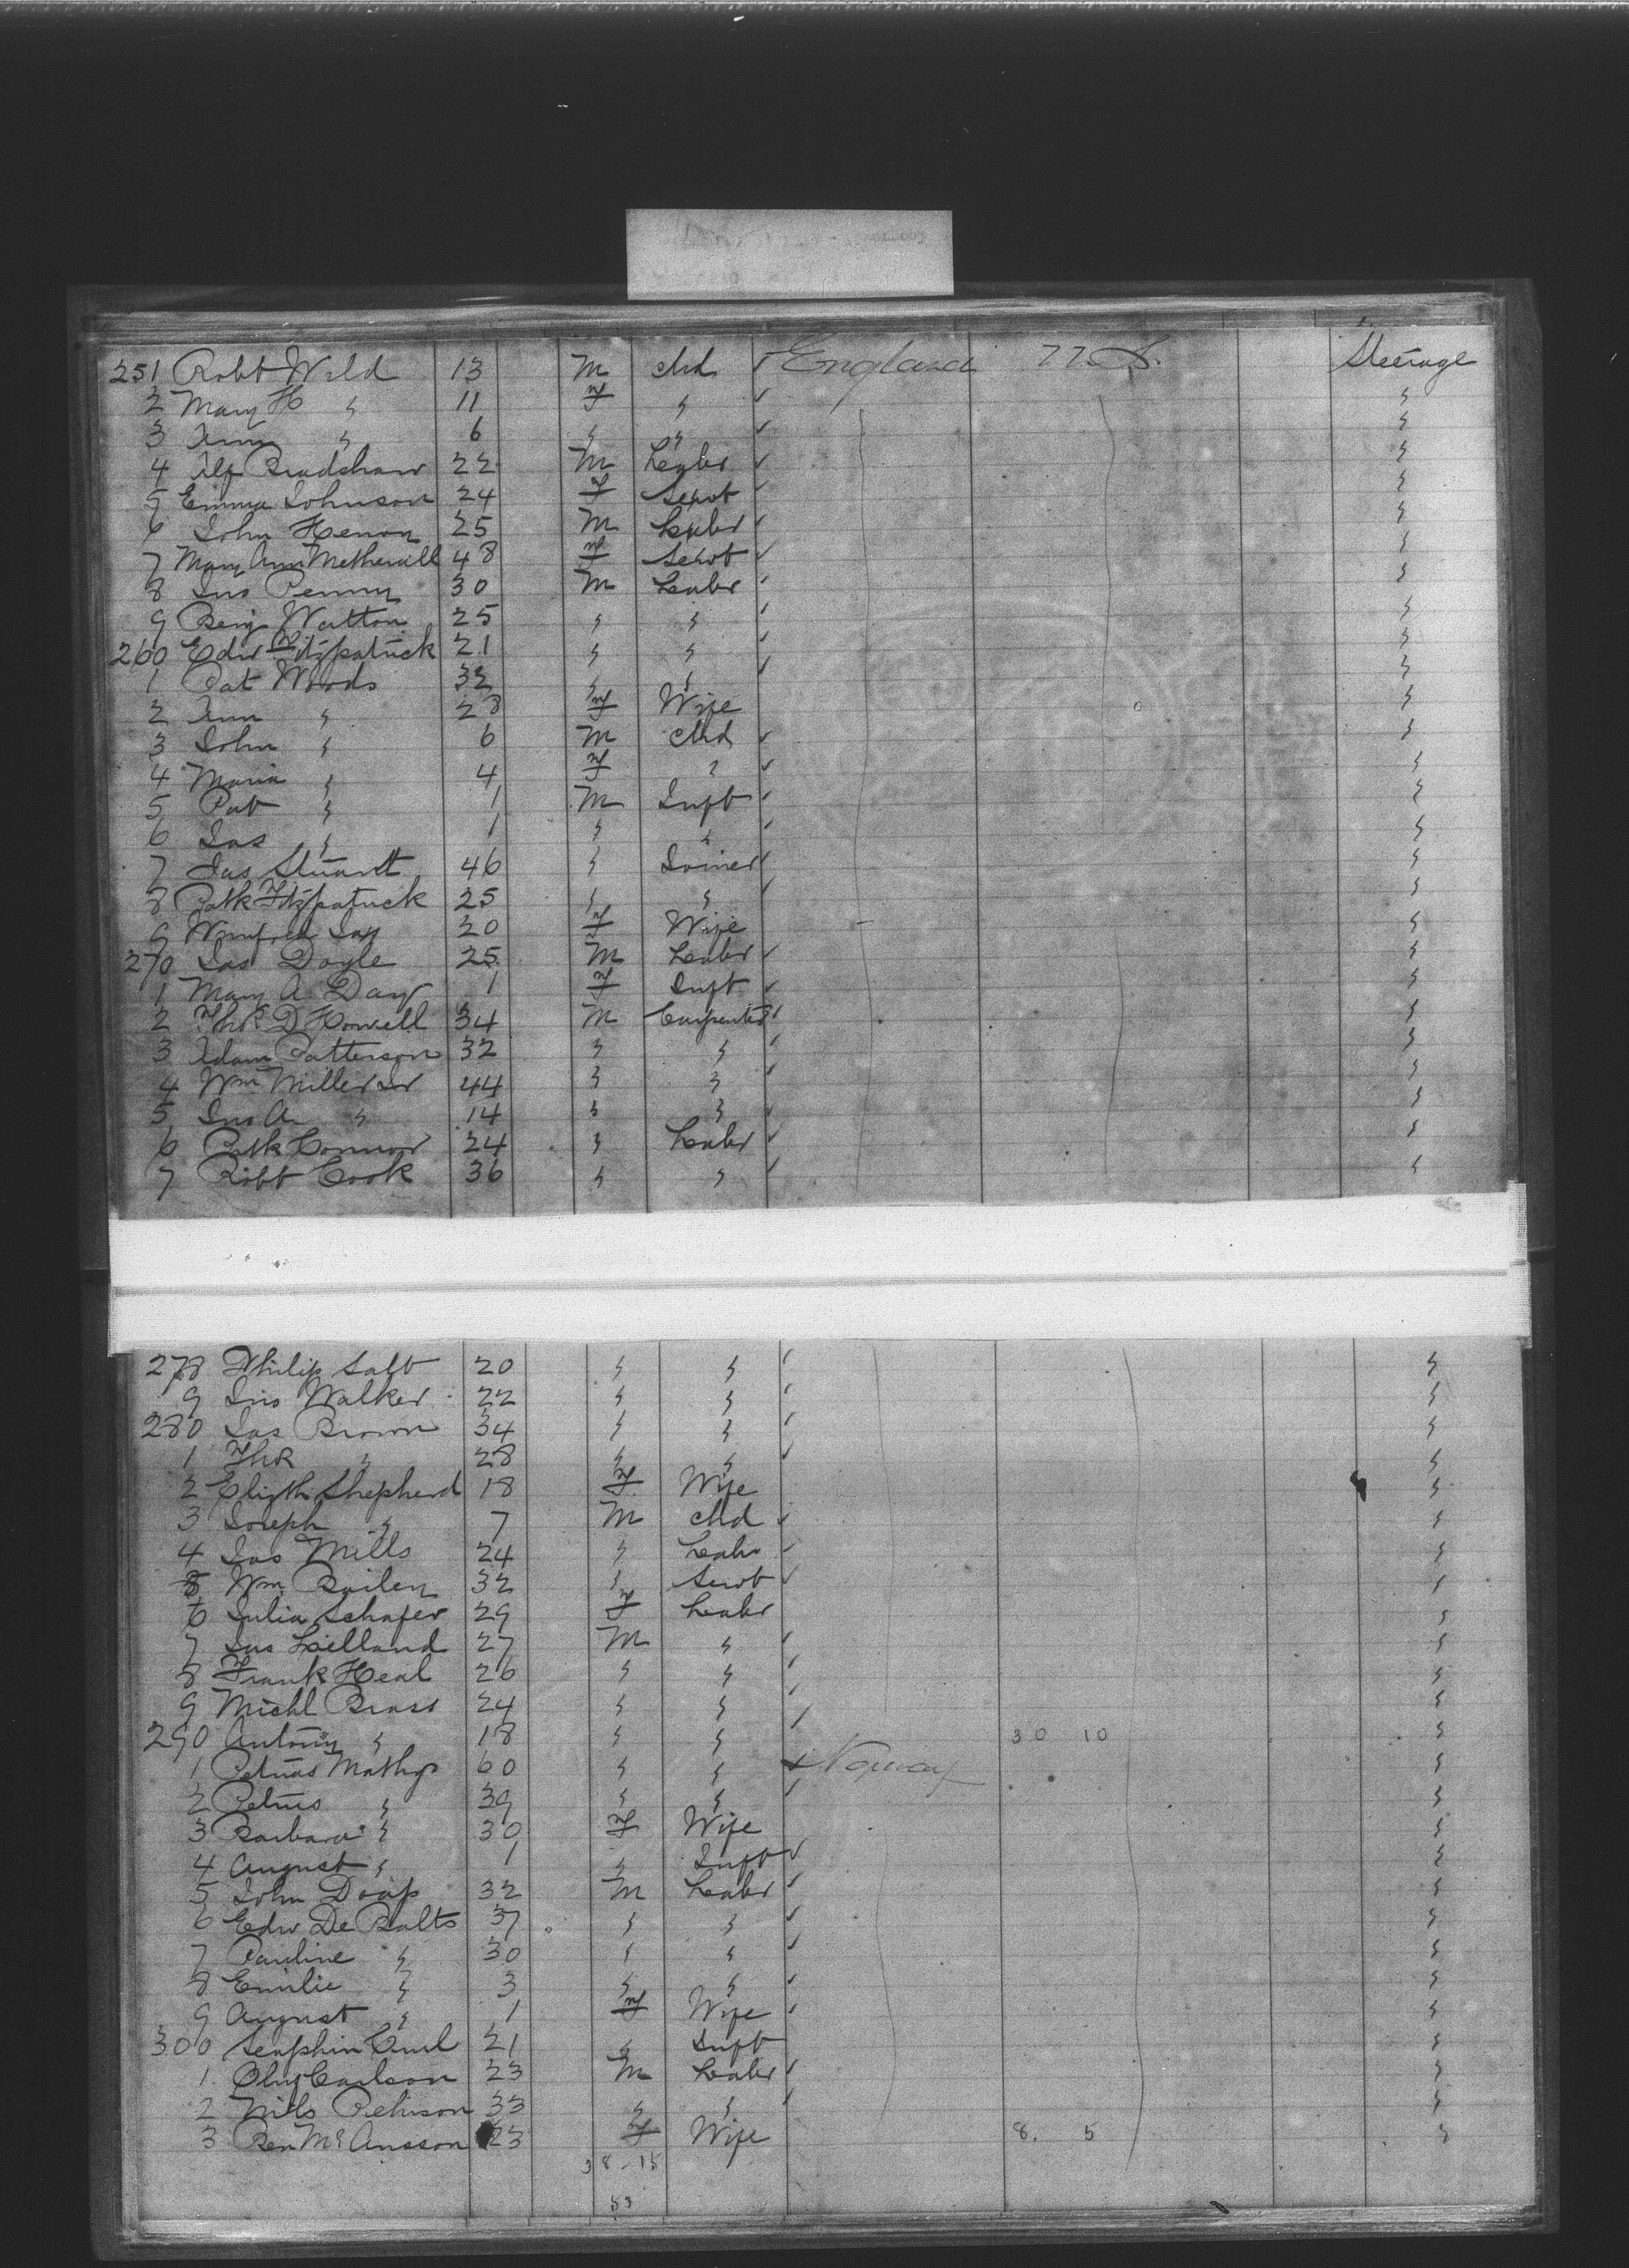 251 Robt Wild 13 M Chd ✓ England U.S. Steerage
2 Mary H " 11 F " ✓ "
3 Amy " 6 " " ✓ "
4 Alf Bradshaw 22 M Labr ✓ "
5 Emma Johnson 24 F Servt ✓ "
6 John Henon 25 M Labr ✓ "
7 Mary Ann Metherall 48 F Servt ✓ "
8 Jno Penny 30 M Labr ✓ "
9 Benj Watton 25 " " ✓ "
260 Edw Fitzpatrick 21 " " ✓ "
1 Pat Woods 32 " " ✓ "
2 Ann " 28 F Wife "
3 John " 6 M Chd ✓ "
4 Maria " 4 F " ✓ "
5 Pat " 1 M Inft ✓ "
6 Jas " 1 " " ✓ "
7 Jas Stuart 46 " Joiner ✓ "
8 Patk Fitzpatrick 25 " " ✓ "
9 Winifred 20 F Wife "
270 Jas Doyle 25 M Labr ✓ "
1 Mary A. Day 1 F Inft ✓ "
2 Thos D Howell 34 M Carpenter ✓ "
3 Adam Patterson 32 " " ✓ "
4 Wm Miller Sr 44 " " ✓ "
5 Jno A. " 14 " " ✓ "
6 Patk Connor 24 " Labr ✓ "
7 Robt Cook 36 " " ✓ "
278 Philip Salt 20 " " ✓ "
9 Jno Walker 22 " " ✓ "
280 Jas Brown 34 " " ✓ "
1 Thos " 28 " " ✓ "
2 Elizth Shepherd 18 F Wife "
3 Joseph " 7 M Chd ✓ "
4 Jas Mills 24 " Labr ✓ "
5 Wm Bailey 32 " Servt ✓ "
6 Julia Schafer 29 F Labr "
7 Jas 27 M " ✓ "
8 Frank Heal 26 " " ✓ "
9 Michl Brass 24 " " ✓ "
290 Antony " 18 " " ✓ 30 10 "
1 Petrus Mathys 60 " " ✓ Norway "
2 Petrus " 39 " " ✓ "
3 Barbara " 30 F Wife "
4 August " 1 " Inft ✓ "
5 John 32 M Labr ✓ "
6 Edw De Balts 37 " " ✓ "
7 Pauline " 30 " " ✓ "
8 Emilie " 3 " " ✓ "
9 August " 1 F Wife ✓ "
300 Seraphin 21 " Inft "
1 Carlson 23 M Labr ✓ "
2 Nills Pehrson 33 " " ✓ "
3 23 F Wife 8. 5 "
38.15
53